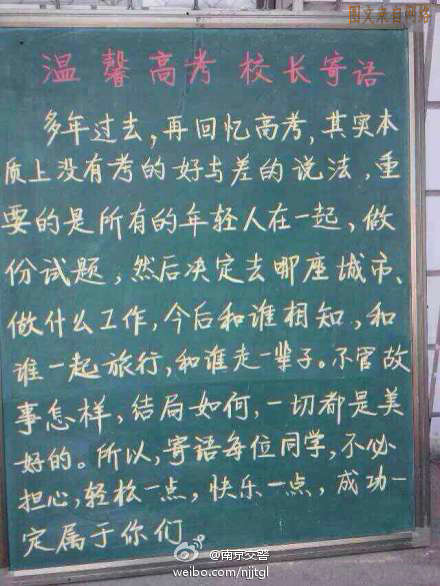 图文来自网络
温馨高考 校长寄语
多年过去，再回忆高考，其实本
质上没有考的好与差的说法，重
要的是所有的年轻人在一起，做
份试题，然后决定去哪座城市、
做什么工作，今后和谁相知，和
谁一起旅行，和谁走一辈子。不管故
事怎样，结局如何，一切都是美
好的。所以，寄语每位同学，不必
担心，轻松一点，快乐一点，成功一
定属于你们
@南京交警
weibo.com/njjtgl